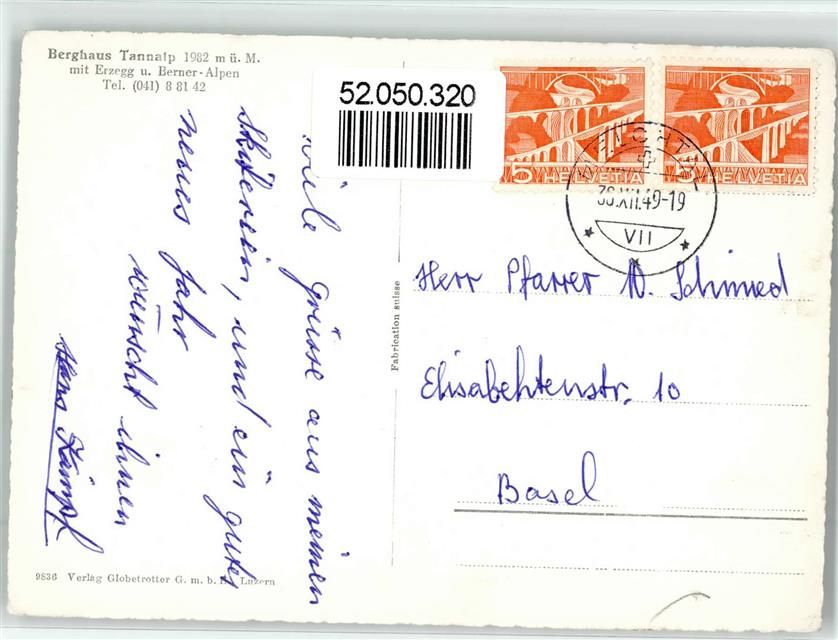 Berghaus Tannalp 1982 m ü. M.
mit Erzegg u. Berner-Alpen
Tel. (041) 8 81 42
52.050.320
5 HELVETIA
5 HELVETIA
30.XII.49-19
VII
viele Grüsse aus meinen
Skiferien, und ein gutes
neues Jahr
wünscht ihnen
Hans Kämpf
Fabrication suisse
Herr Pfarrer W. Schmied
Elisabehtenstr. 10
Basel
9836 Verlag Globetrotter G. m. b. H. Luzern